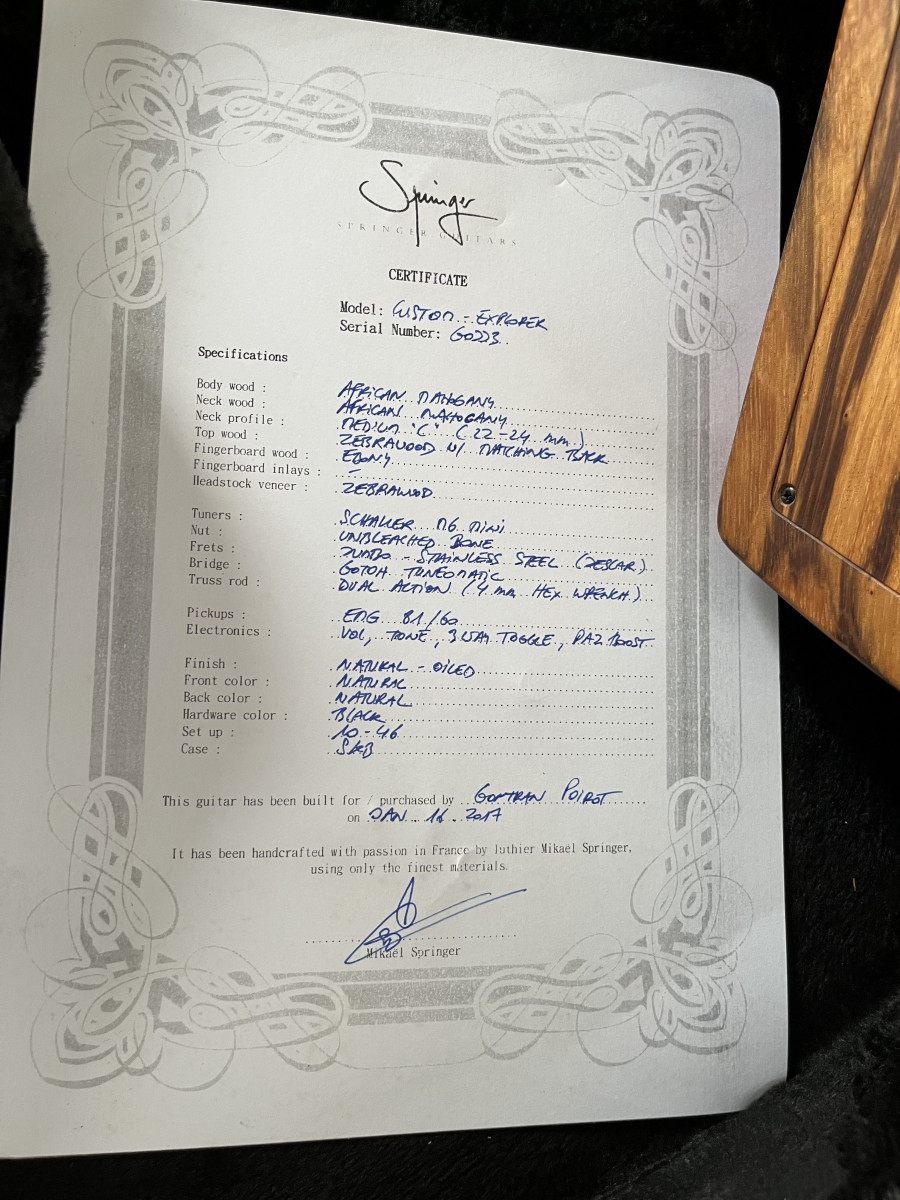 Springer
SPRINGER GUITARS
CERTIFICATE
Model: CUSTOM - EXPLORER
Serial Number: G0223
Specifications
Body wood : AFRICAN MAHOGANY
Neck wood : AFRICAN MAHOGANY
Neck profile : MEDIUM "C" (22-24 mm)
Top wood : ZEBRAWOOD W/ MATCHING BACK
Fingerboard wood : EBONY
Fingerboard inlays : -
Headstock veneer : ZEBRAWOOD
Tuners : SCHALLER M6 MINI
Nut : UNBLEACHED BONE
Frets : JUMBO - STAINLESS STEEL (JESCAR)
Bridge : GOTOH TUNEOMATIC
Truss rod : DUAL ACTION (4 mm HEX WRENCH)
Pickups : EMG 81/60
Electronics : VOL, TONE, 3 WAY TOGGLE, PA2 BOOST
Finish : NATURAL - OILED
Front color : NATURAL
Back color : NATURAL
Hardware color : BLACK
Set up : 10-46
Case : SKB
This guitar has been built for / purchased by GONTRAN POIROT
on JAN. 16. 2017
It has been handcrafted with passion in France by luthier Mikaël Springer,
using only the finest materials.
Mikaël Springer